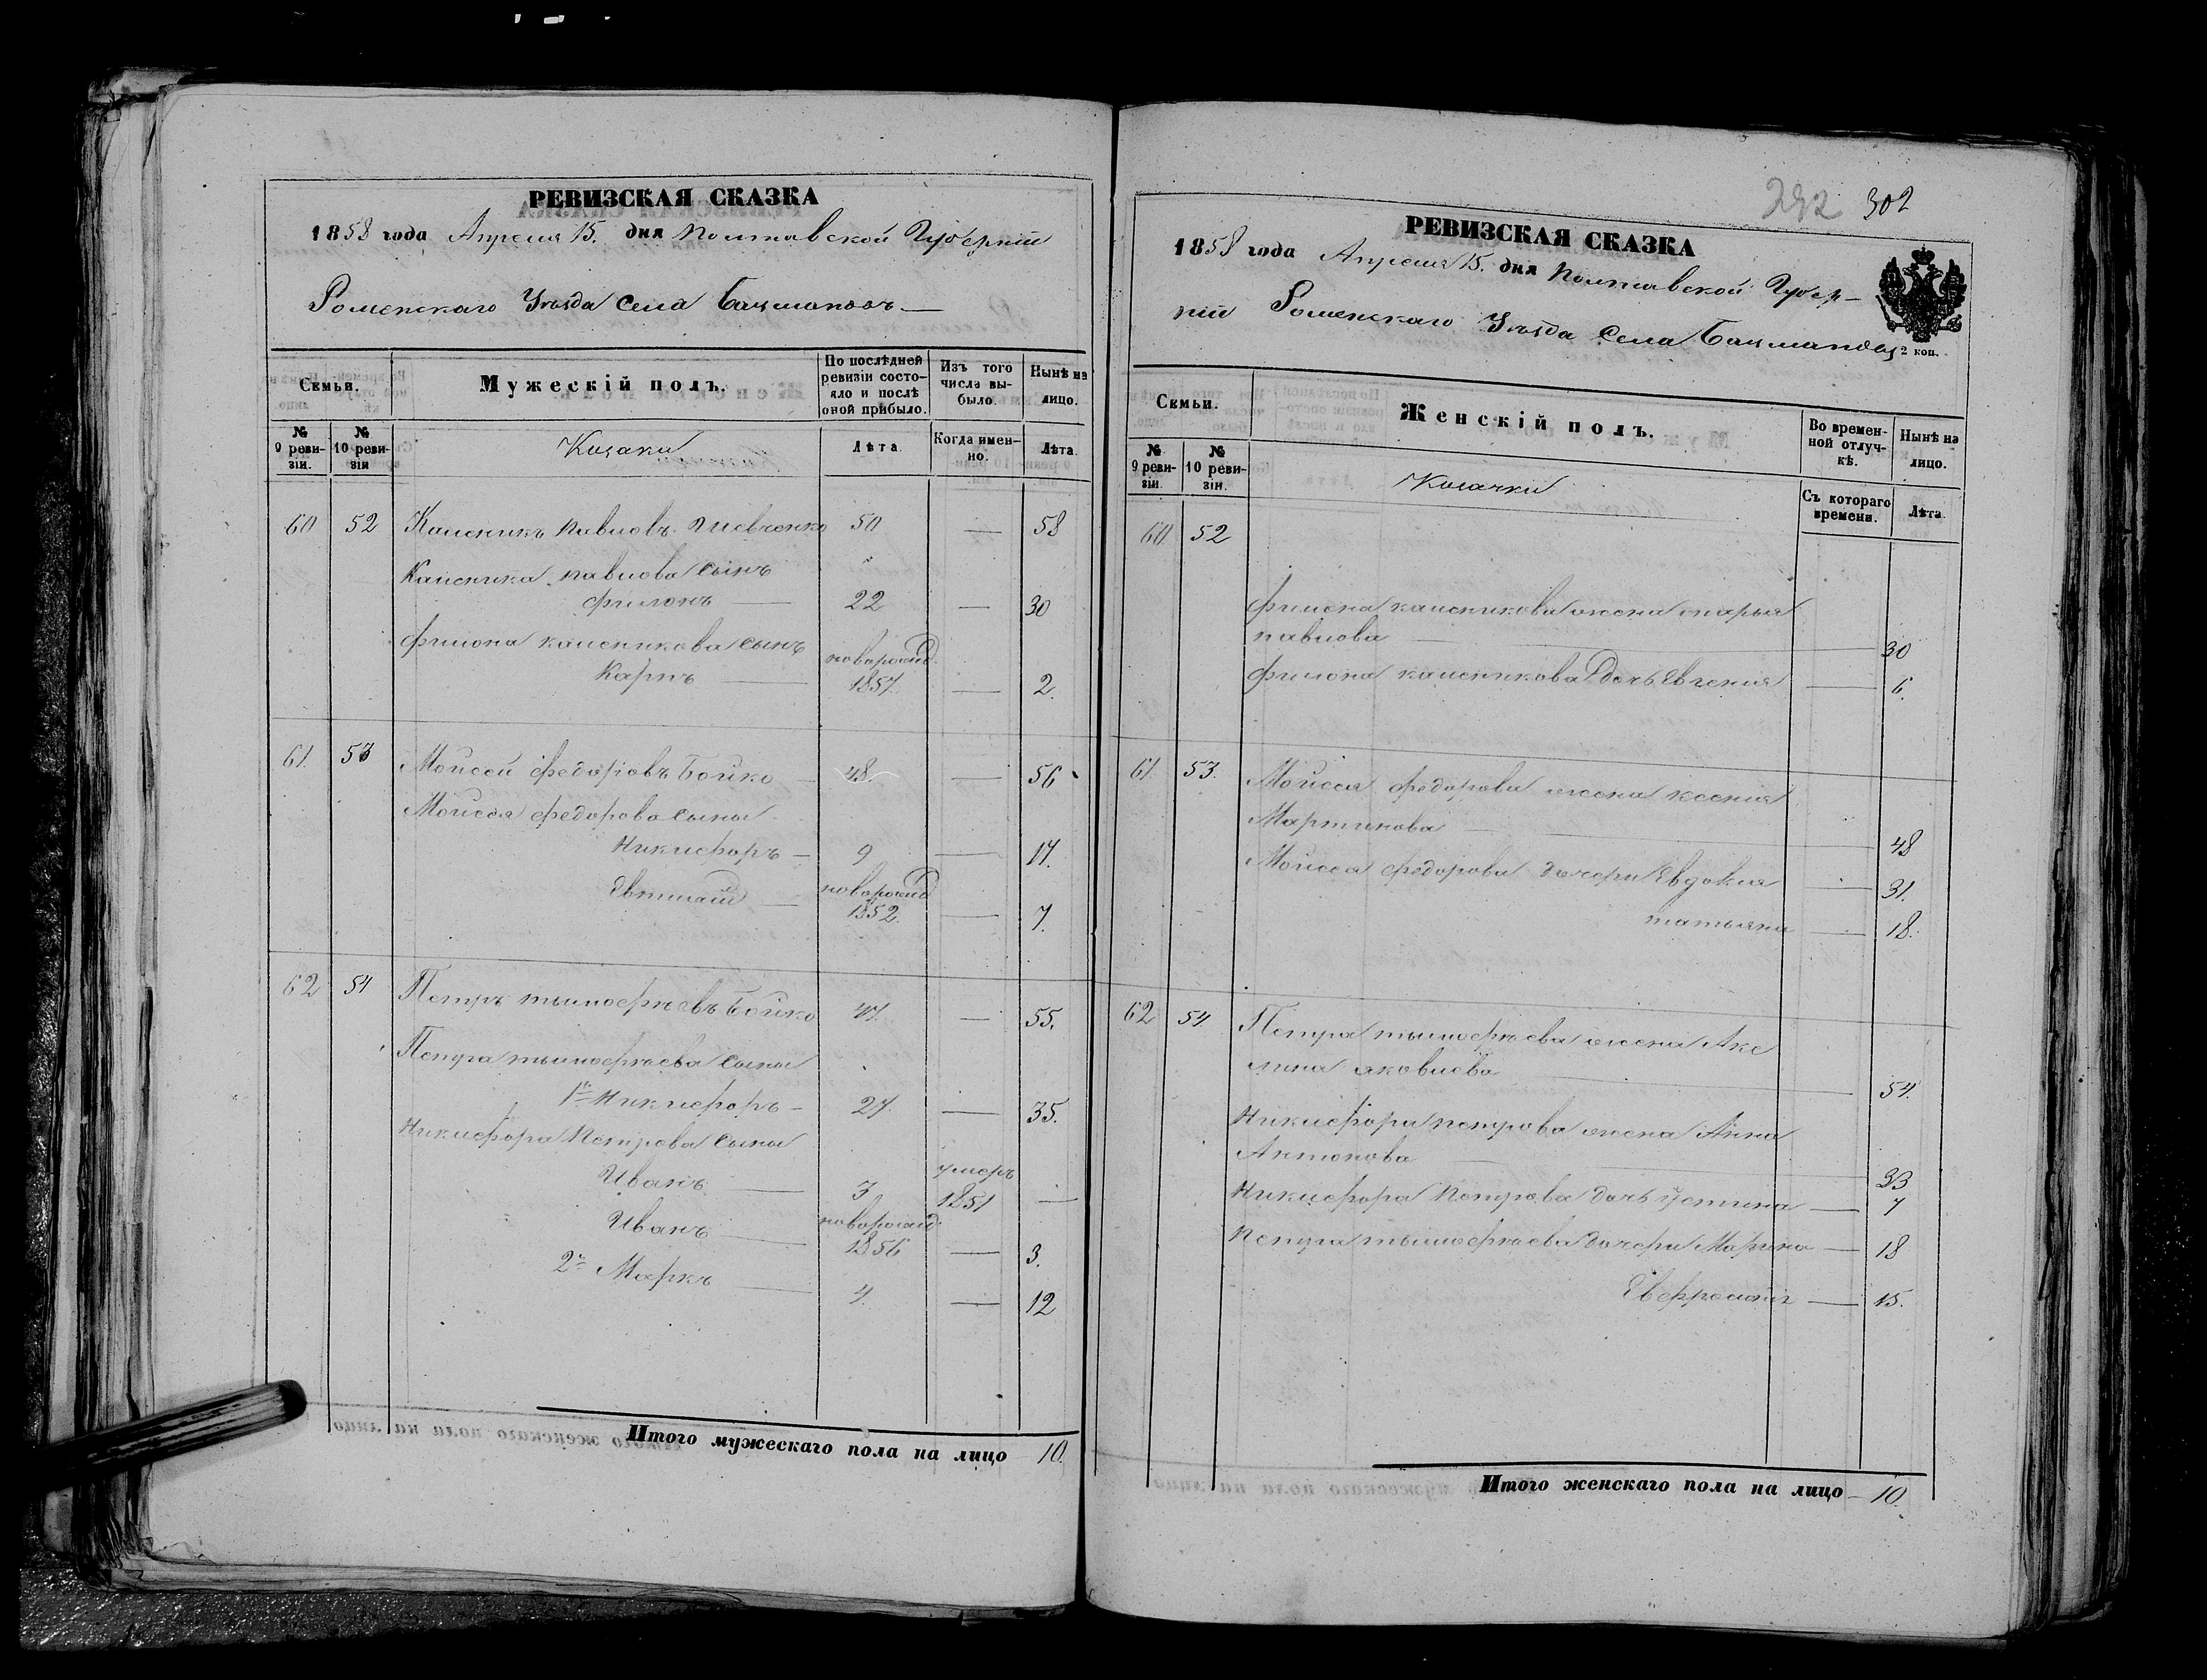 РЕВИЗСКАЯ СКАЗКА
1858 года Апреля 15. дня Полтавской Губерніи
Роменскаго Уѣзда Села Бацманова
Семьи.
Мужескій полъ.
По послѣдней ревизіи состояло и послѣ оной прибыло.
Изъ того числа выбыло.
Нынѣ на лицо.
№ 9 ревизіи.
№ 10 ревизіи
Козаки
Лѣта
Когда именно.
Лѣта.
60 52 Каленикъ Павловъ Шевченко 50 — 58
Каленика Павлова Сынъ
Филонъ — 22 — 30
Филона Каленикова Сынъ новорожд.
Карпъ — 1857. — 2.
61. 53 Моисей Федоровъ Бойко — 48. — 56
Моисея Федорова Сыны
Никифоръ — 9 — 17.
Евтихій — новорожд 1852. — 7.
62 54 Петръ Тимофѣевъ Бойко 47. — 55.
Петра Тимофѣева Сыны
1й Никифоръ — 27. — 35.
Никифора Петрова Сыны
Иванъ — 3 умеръ 1851 —
Иванъ — новорожд. 1856 — 3.
2й Маркъ — 4. — 12
Итого мужескаго пола на лицо 10.
292 302
РЕВИЗСКАЯ СКАЗКА
1858 года Апреля 15. дня Полтавской Губер-
ніи Роменскаго Уѣзда Села Бацманова
2 коп.
Семьи.
Женскій полъ.
Во временной отлучкѣ.
Нынѣ на лицо.
№ 9 ревизіи.
№ 10 ревизіи.
Козачки
Съ котораго времени.
Лѣта
60 52
Филона Каленикова жена Марья
Павлова — 30
Филона Каленикова Дочь Евгения — 6.
61. 53. Моисея Федорова жена Ксения
Мартинова — 48
Моисея Федорова дочери Евдокия — 31.
Татьяна — 18.
62 54 Петра Тимофѣева жена Аке
лина Яковлева — 54.
Никифора Петрова жена Анна
Антонова — 33
Никифора Петрова дочь Устина — 7
Петра Тимофѣева дочери Марина — 18
Евфросинія — 15.
Итого женскаго пола на лицо — 10.